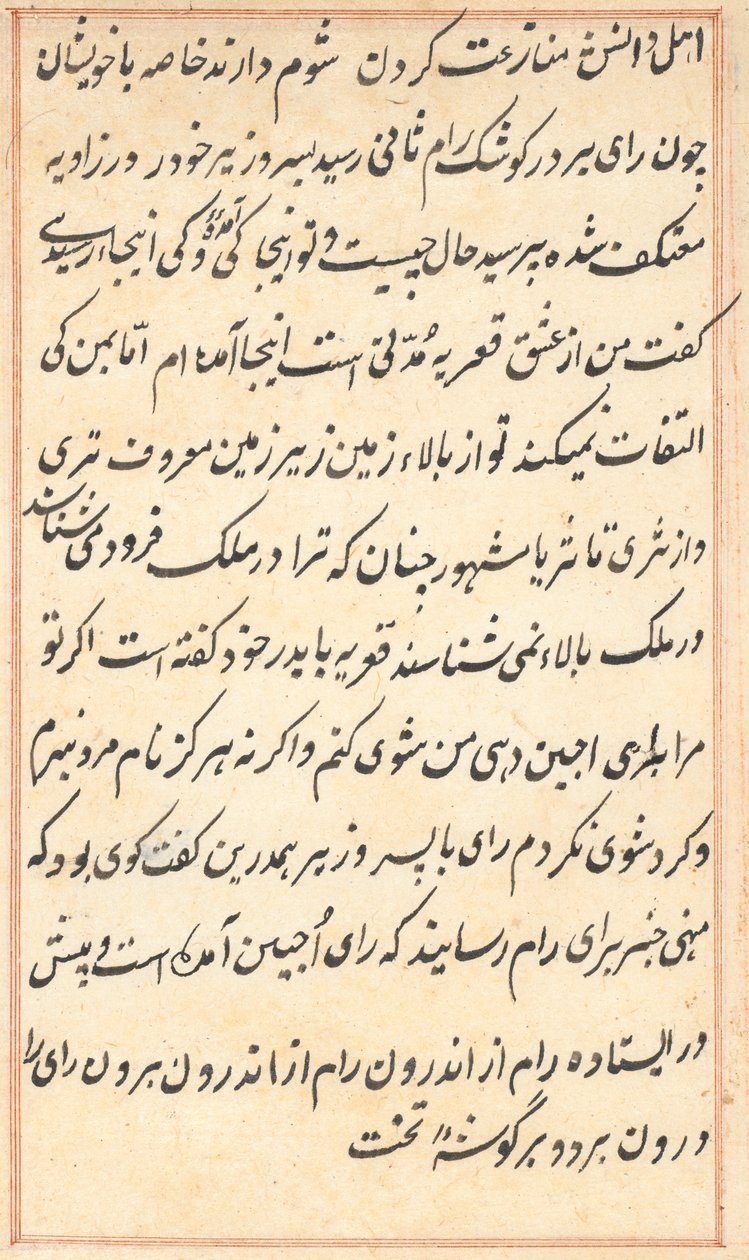 اهل دانش منازعت کردن شوم دارند خاصه با خویشان
چون رای بر در کوشک رام ثانی رسید پسر وزیر خود در زاویه
معتکف شده پرسید حال چیست و تو اینجا کی آمدهٔ و کی اینجا رسیدی
گفت من از عشق قعریه مُدّتی است اینجا آمده ام امّا بمن کی
التفات نمیکند تو از بالاء زمین زیر زمین معروف تری
و از ثری تا ثریا مشهور چنان که ترا در ملک فرود می شناسند
در ملک بالاء نمی شناسند قعریه با پدر خود کفته است اکر تو
مرا برای اجین دهی من شوی کنم و اکر نه هرکز نام مرد نبرم
و کرد شوی نکردم رای با پسر وزیر همدرین کفت کوی بود که
منهی خبر برای رام رسانید که رای اُجین آمده است و پیش
در ایستاده رام از اندرون رام از اندرون برون رای را
درون برد و بر گوشهٔ تخت